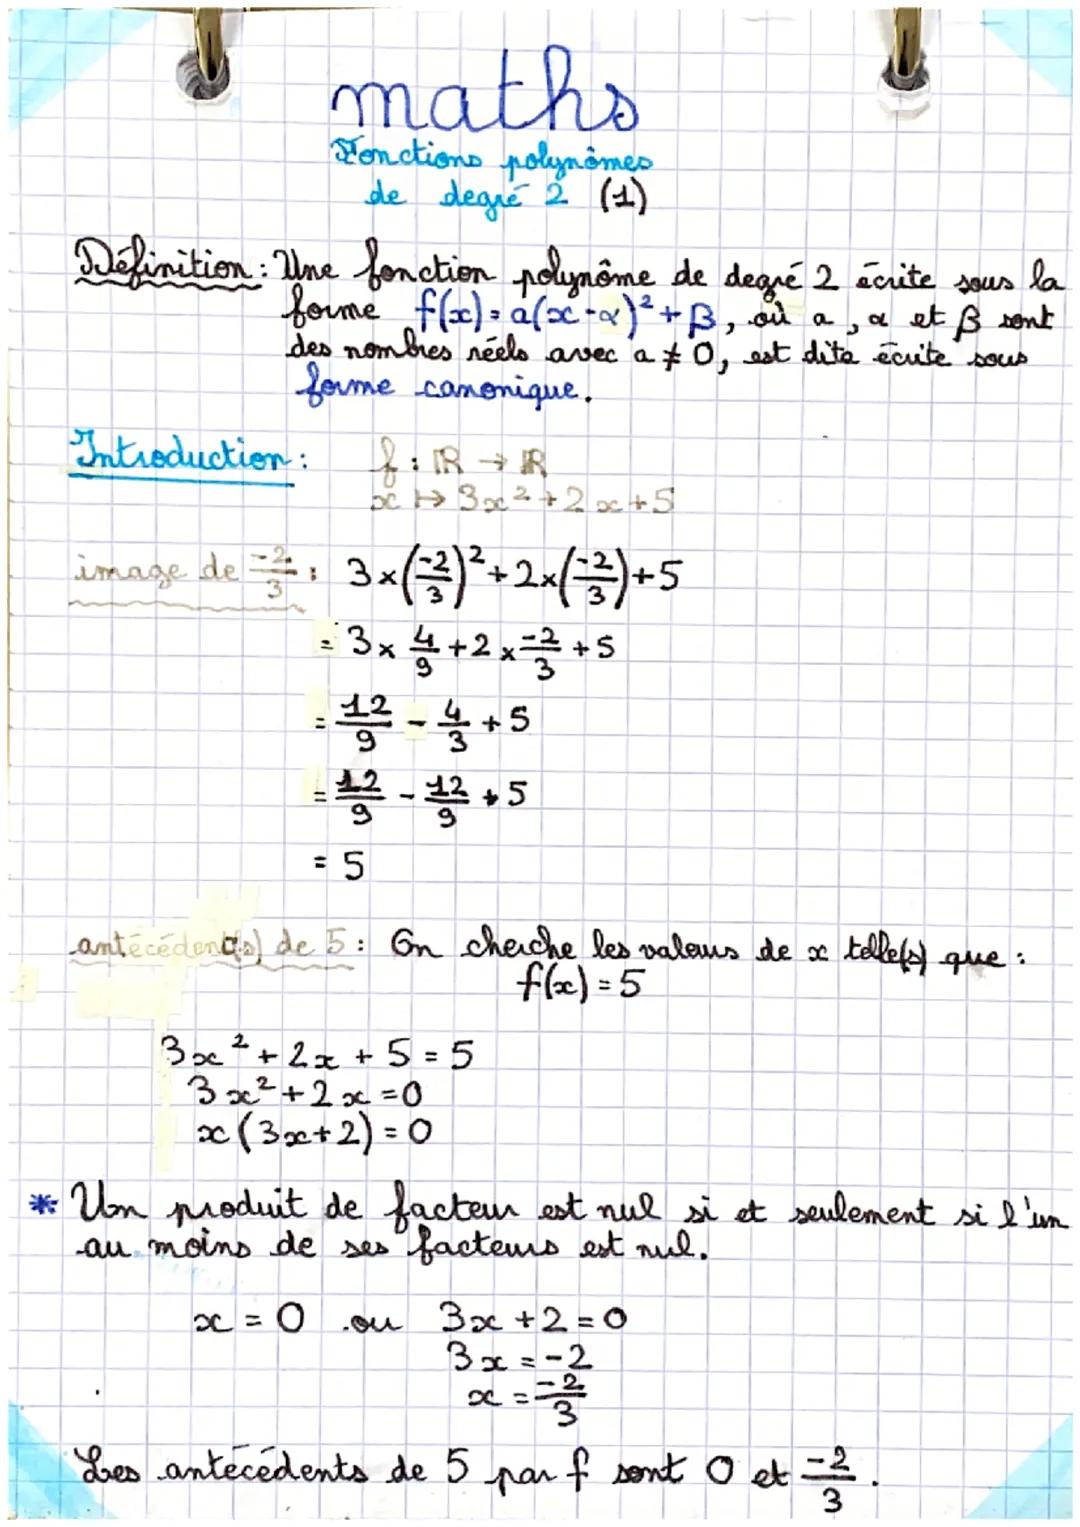 maths
Fonctions polynômes
de degré 2 (1)
Définition : Une fonction polynôme de degré 2 écrite sous la
forme f(x) = a(x-α)² + β, où a, α et β sont
des nombres réels avec a ≠ 0, est dite écrite sous
forme canonique.
Introduction : f : ℝ → ℝ
x ↦ 3x² + 2x + 5
image de -2/3 : 3 × (-2/3)² + 2 × (-2/3) + 5
= 3 × 4/9 + 2 × -2/3 + 5
= 12/9 - 4/3 + 5
= 12/9 - 12/9 + 5
= 5
antécédent(s) de 5 : On cherche les valeurs de x telle(s) que :
f(x) = 5
3x² + 2x + 5 = 5
3x² + 2x = 0
x(3x+2) = 0
* Un produit de facteur est nul si et seulement si l'un
au moins de ses facteurs est nul.
x = 0 ou 3x + 2 = 0
3x = -2
x = -2/3
Les antécédents de 5 par f sont 0 et -2/3.